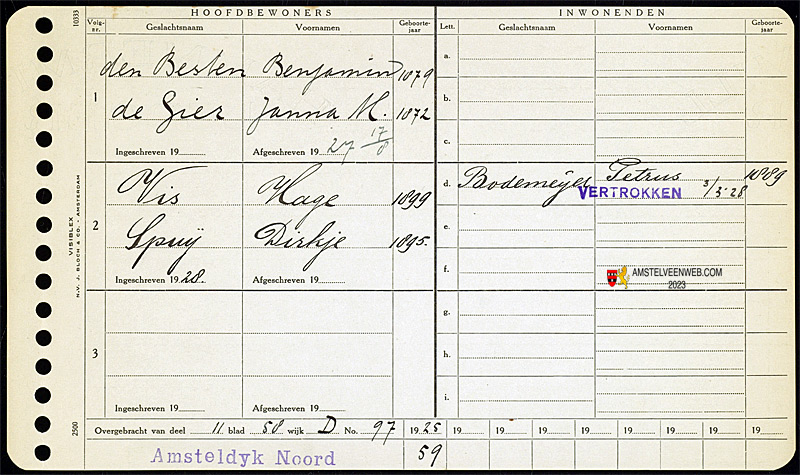 HOOFDBEWONERS INWONENDEN
Volg-nr. Geslachtsnaam Voornamen Geboorte-jaar Lett. Geslachtsnaam Voornamen Geboorte-jaar
10333
a.
den Besten Benjamin 1879
1
b.
de Gier Janna M. 1872
c.
Ingeschreven 19 Afgeschreven 19 27 17/8
d. Bodemeyer Petrus 1889
VERTROKKEN 3/5-28
Vis Hage 1899
2
e.
Spuÿ Dirkje 1895.
f.
Ingeschreven 19 28. Afgeschreven 19
AMSTELVEENWEB.COM
2023
g.
h.
3
i.
Ingeschreven 19 Afgeschreven 19
VISIBLEX
N.V. J. BLOCH & CO. - AMSTERDAM
2500
Overgebracht van deel 11 blad 58 wijk D No. 97 1925 19 19 19 19 19 19 19 19
Amsteldyk Noord 59